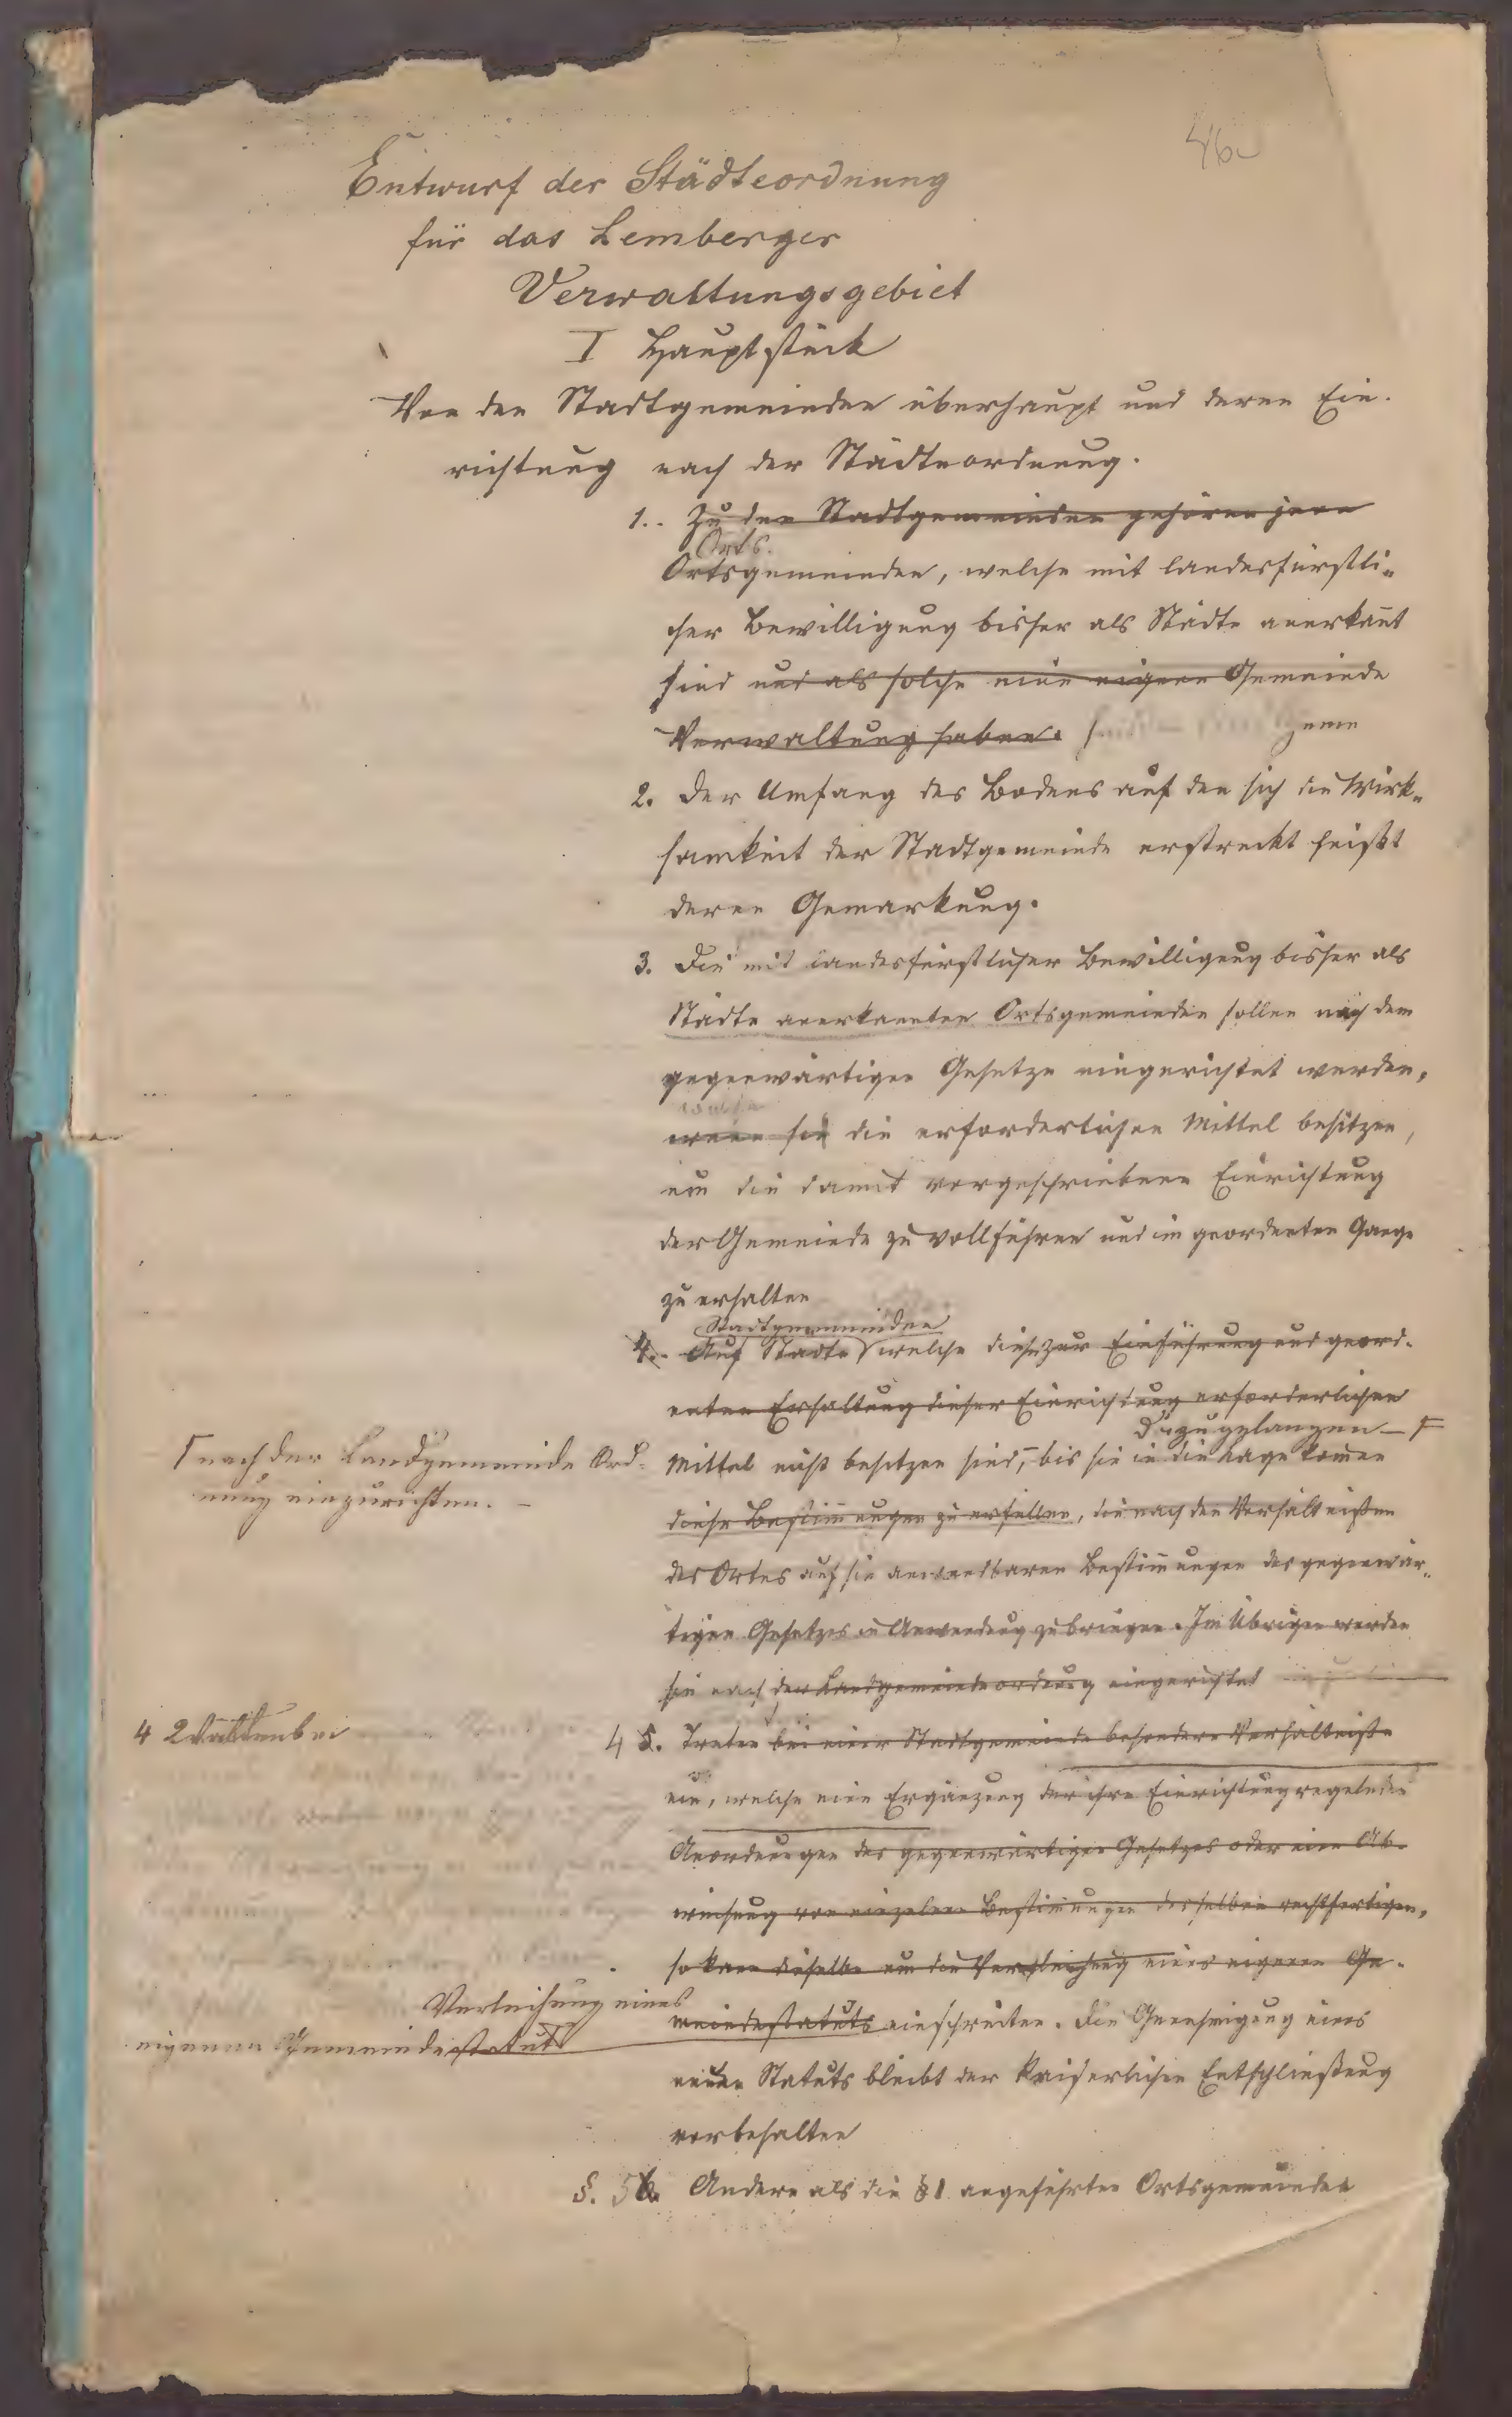 46
Entwurf der Städteordnung
für das Lemberger
Verwaltungsgebiet
I Hauptstück
Von den Stadtgemeinden überhaupt und deren Ein-
richtung nach der Städteordnung.
1. Zu den Stadtgemeinden gehören jene
Orts
Ortsgemeinden, welche mit landesfürstli-
cher Bewilligung bisher als Städte anerkan̄t
sind und als solche eine eigene Gemeinde
Verwaltung haben.
2. Der Umfang des Bodens auf den sich die Wirk-
samkeit der Stadtgemeinde erstreckt heißt
deren Gemarkung.
3. Die mit landesfürstlicher Bewilligung bisher als
Städte anerkannten Ortsgemeinden sollen nach dem
gegenwärtigen Gesetze eingerichtet werden,
welche
wenn sie die erforderlichen Mittel besitzen,
um die damit vorgeschriebene Einrichtung
der Gemeinde zu vollführen und im geordneten Gange
zu erhalten
Stadtgemeinden
4. Auf Städte welche diese zur Einführung und geord-
neten Erhaltung dieser Einrichtung erforderlichen
dazu zu gelangen
Mittel nicht besitzen sind, bis sie in die Lage kom̄en
diese Bestim̄ungen zu erfüllen, die nach den Verhältnißen
des Ortes auf sie anwendbaren Bestim̄ungen des gegenwär-
tigen Gesetzes in Anwendung zu bringen. Im Übrigen werden
sie nach der Landgemeindeordnung eingerichtet
nach der Landgemeinde Ord-
nung einzurichten. –
4
4 5. Treten bei einer Stadtgemeinde besondere Verhältniße
ein, welche eine Ergänzung der ihre Einrichtung regelnden
Anordnungen des gegenwärtigen Gesetzes oder eine Ab-
weichung von einzelnen Bestim̄ungen desselben rechtfertigen,
so kann dieselbe um die Verleihung eines eigenen Ge-
meindestatuts einschreiten. Die Genehmigung eines
Verleihung eines
eigenen Gemeindestatuts
neuen Statuts bleibt der kaiserlichen Entschließung
vorbehalten
§. 5 6. Andere als die §1 angeführten Ortsgemeinden